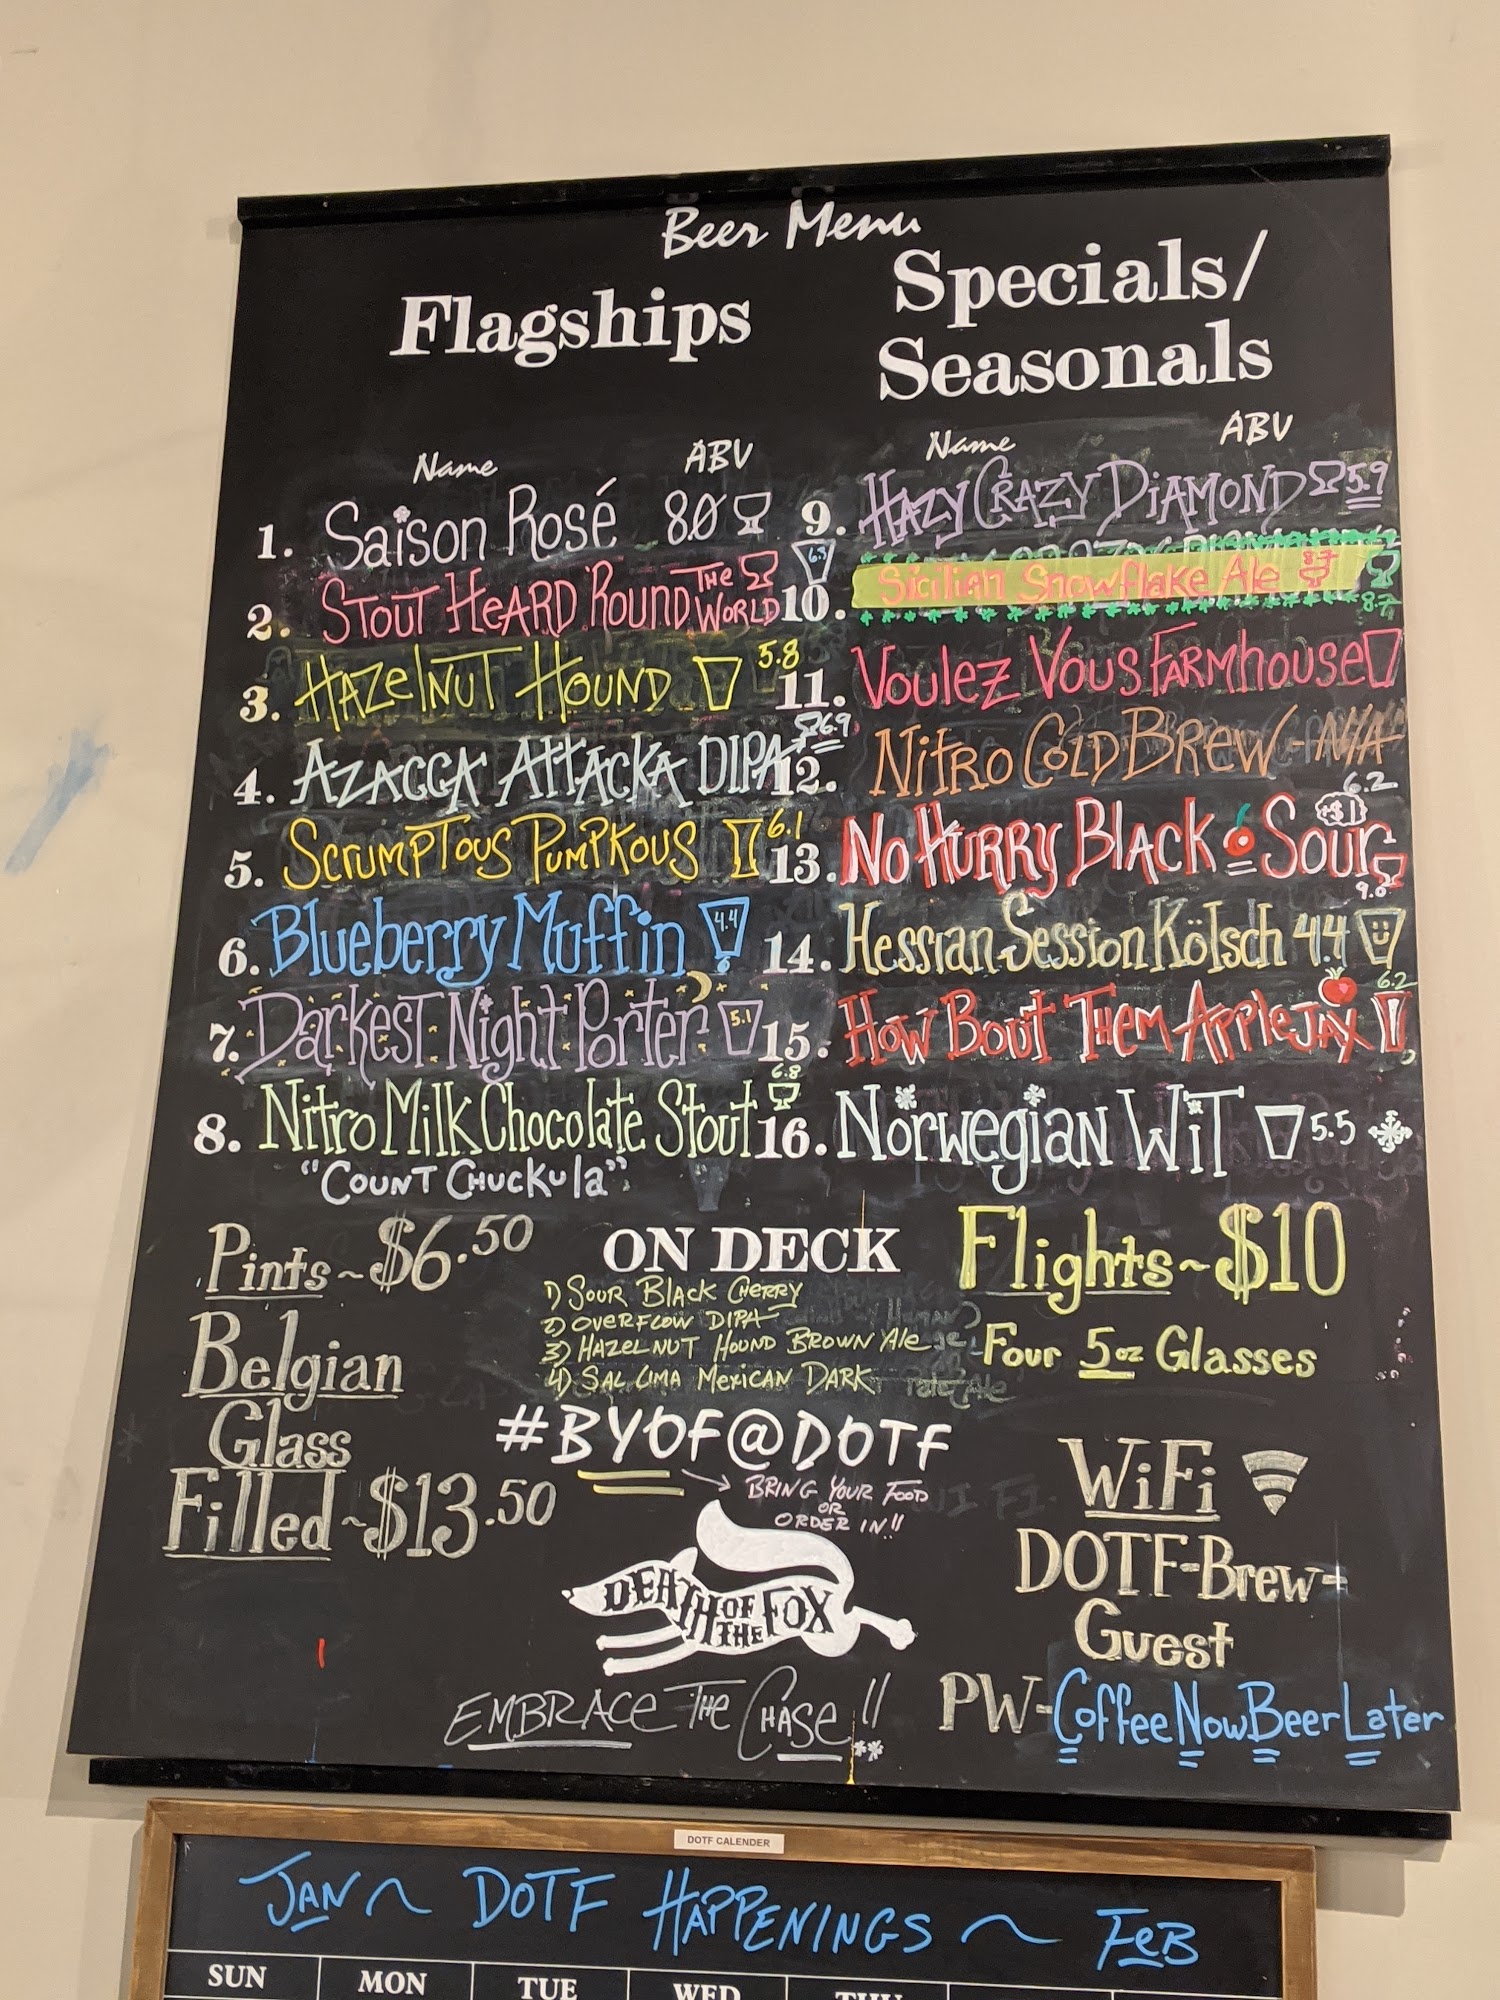 Beer Menu
Flagships
Specials/
Seasonals
Name ABV
Name ABV
1. Saison Rosé 8.0
2. Stout Heard 'Round The World
3. Hazelnut Hound 5.8
4. Azacca Attacka DIPA 6.9
5. Scrumptous Pumpkous 6.1
6. Blueberry Muffin 4.4
7. Darkest Night Porter 5.1
8. Nitro Milk Chocolate Stout 6.8
"Count Chuckula"
9. Hazy Crazy Diamond 5.9
6.3
10. Sicilian Snowflake Ale 8.7
8.7
11. Voulez Vous Farmhouse
12. Nitro Cold Brew - N/A
6.2
13. No Hurry Black Sour +$1
9.0
14. Hessian Session Kölsch 4.4
15. How Bout Them Apple Jax 6.2
16. Norwegian Wit 5.5
Pints ~ $6.50
Belgian
Glass
Filled ~ $13.50
ON DECK
1) Sour Black Cherry
2) Overflow DIPA
3) Hazelnut Hound Brown Ale
4) Sal Lima Mexican Dark
#BYOF@DOTF
Bring Your Food
or
Order In!!
DEATH OF THE FOX
Embrace The Chase!!
Flights ~ $10
Four 5oz Glasses
WiFi
DOTF-Brew-
Guest
PW-CoffeeNowBeerLater
DOTF CALENDER
Jan ~ DOTF Happenings ~ Feb
SUN MON TUE WED THU